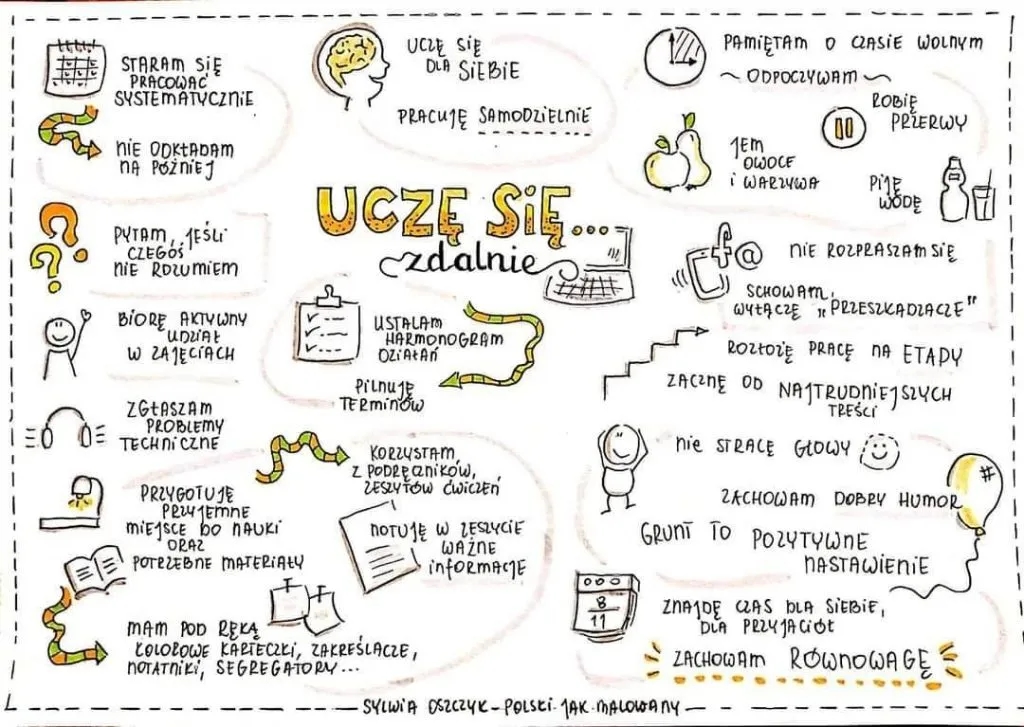 STARAM SIĘ
PRACOWAĆ
SYSTEMATYCZNIE
NIE ODKŁADAM
NA PÓŹNIEJ
UCZĘ SIĘ
DLA SIEBIE
PRACUJĘ SAMODZIELNIE
PAMIĘTAM O CZASIE WOLNYM
~ ODPOCZYWAM ~
ROBIĘ
PRZERWY
JEM
OWOCE
I WARZYWA
PIJĘ
WODĘ
UCZĘ SIĘ...
zdalnie
PYTAM, JEŚLI
CZEGOŚ
NIE ROZUMIEM
BIORĘ AKTYWNY
UDZIAŁ
W ZAJĘCIACH
ZGŁASZAM
PROBLEMY
TECHNICZNE
USTALAM
HARMONOGRAM
DZIAŁAŃ
PILNUJĘ
TERMINÓW
f @
NIE ROZPRASZAM SIĘ
SCHOWAM,
WYŁĄCZĘ „PRZESZKADZACZE"
ROZŁOŻĘ PRACĘ NA ETAPY
ZACZNĘ OD NAJTRUDNIEJSZYCH
TREŚCI
PRZYGOTUJĘ
PRZYJEMNE
MIEJSCE DO NAUKI
ORAZ
POTRZEBNE MATERIAŁY
KORZYSTAM
Z PODRĘCZNIKÓW,
ZESZYTÓW ĆWICZEŃ
NOTUJĘ W ZESZYCIE
WAŻNE
INFORMACJE
MAM POD RĘKĄ
KOLOROWE KARTECZKI, ZAKREŚLACZE,
NOTATNIKI, SEGREGATORY...
NIE STRACĘ GŁOWY
ZACHOWAM DOBRY HUMOR
#
GRUNT TO POZYTYWNE
NASTAWIENIE
8
11
ZNAJDĘ CZAS DLA SIEBIE,
DLA PRZYJACIÓŁ
ZACHOWAM RÓWNOWAGĘ
SYLWIA OSZCZYK - POLSKI JAK MALOWANY